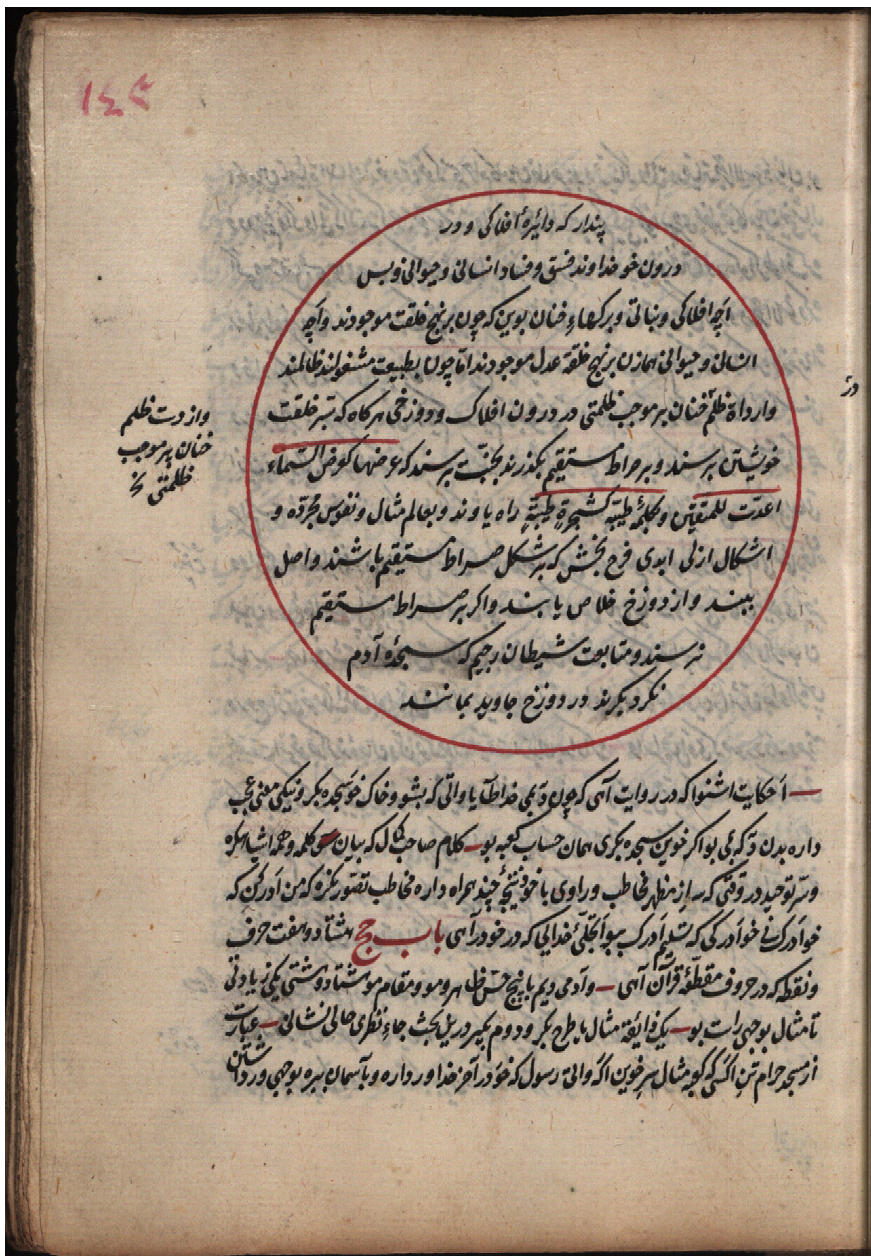 ١٤٤
پندار که دایرهٔ افلاکی و در
درون خو خداوند فسق و فساد انسانی و حیوانی و بس
اچه افلاکی و نباتی و برکهاء خنان بوین که چون بر نهج خلقت موجودند و اچه
انسانی و حیوانی همازن بر نهج خلقة عدل موجودند اما چون بطبیعت مشغولند ظالمند
وارداة ظلم خنان بر موجب ظلمتی در درون افلاک و دوزخی هرکاه که بسر خلقت
خویشتن برسند و بر صراط مستقیم بکذرند بجنت برسند که عرضها کعرض السماء
اعدت للمتقین و بکلمهٔ طیبه کشجرة طیبة راه یاوند و بعالم مثال و نفوس مجرده و
اشکال ازلی ابدی فرح بخش که بر شکل صراط مستقیم باشند واصل
ببند و از دوزخ خلاص یابند و اکر بر صراط مستقیم
نرسند و متابعت شیطان رجیم که سجدهٔ آدم
نکرد بکرند در دوزخ جاوید بمانند
واز دت ظلم
خنان بر موجب
ظلمتی خ
در
احکایت اشنوا که در روایت آهی که چون دیمی خداطآیا واتی که بشو و خاک خو سجده بکر و نیکی معنی عجب
داره بدن که بی بو اکر خوین سجده بکری همان حساب کعبه بو کلام صاحب کمال که بیان کلمه و همه اشیا هکره
و سر توحید در وقتی که راز منظهر مخاطب و راوی با خو نتیجهٔ چند همراه داره مخاطب تصور نکره که من ادرکن که
خو ادرک نی خو ادرکی که تسلیم ادرک ببو اتجلی خدایی که در خو در آهی باب حج هشتاد و هفت حرف
و نقطه که در حروف مقطعهٔ قرآن آهی و آدمی دیم با پنج حس ظاهر و مو و مقام مو هشتاد و هشتی یکی زیادتی
تا مثال بوجهی راست بو یک ذایقة مثال با طرح بکر و دوم بکیر دریل بحث جاء نظری حالی النشانی عبارت
از مسجد حرام تن اکسی که کویه مثال سر خوین اکه واتی رسول که خو در آخر خدا ور داره و بآسمان ببره بوجهی ور داشتن